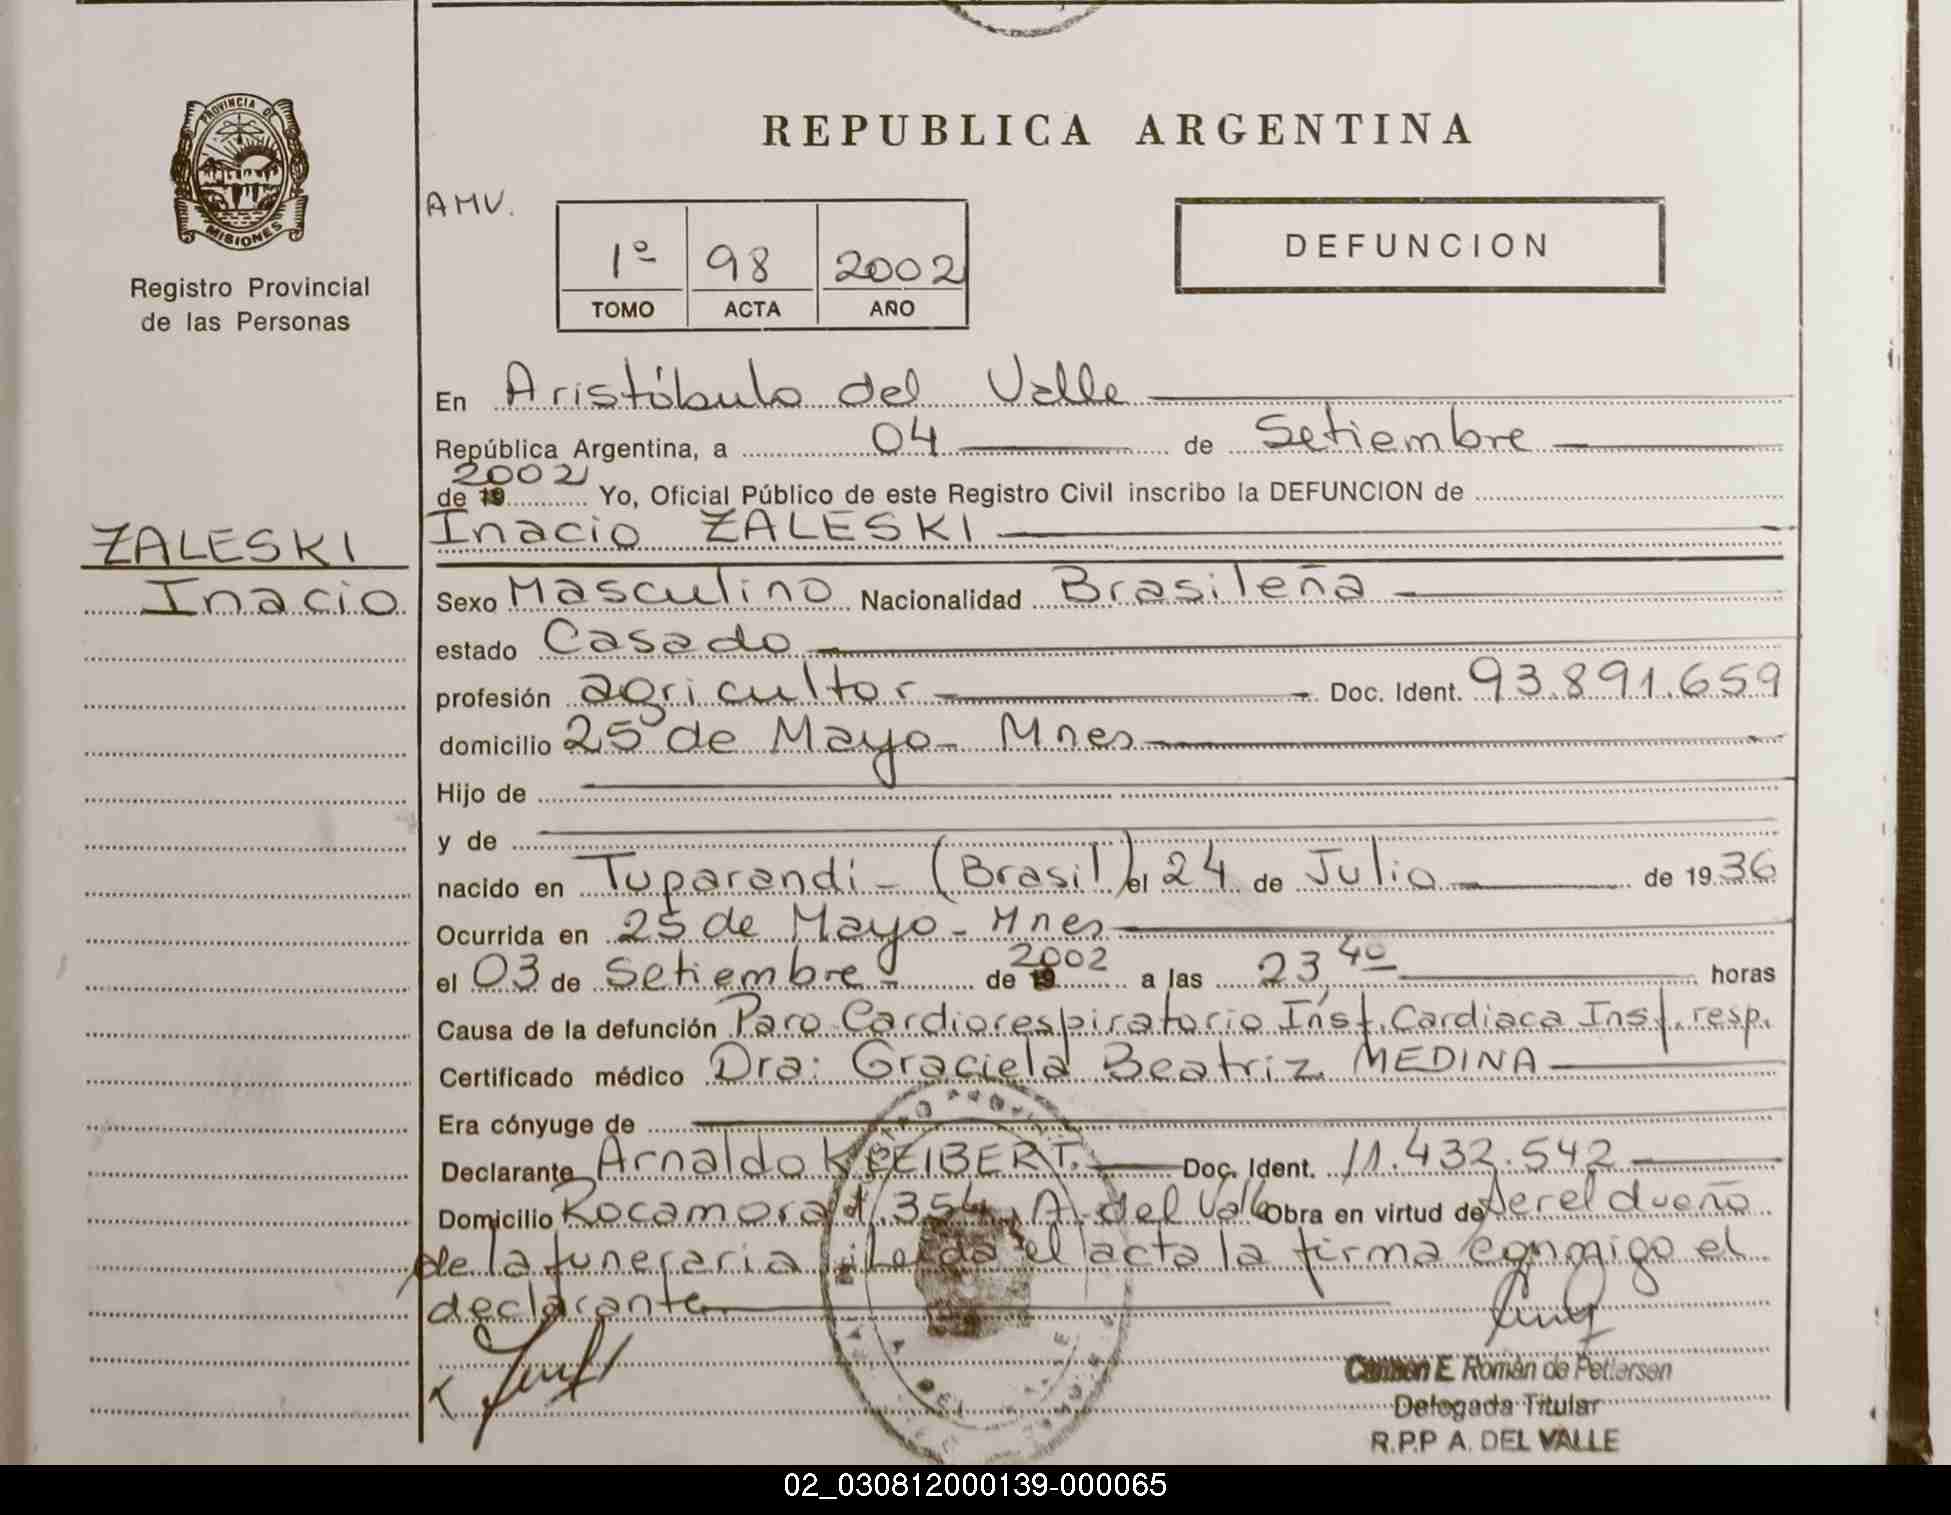 PROVINCIA DE
MISIONES
Registro Provincial
de las Personas
REPUBLICA ARGENTINA
AMV.
1º 98 2002
TOMO ACTA AÑO
DEFUNCION
En Aristóbulo del Valle
República Argentina, a 04 de Setiembre
2002
de 19 Yo, Oficial Público de este Registro Civil inscribo la DEFUNCION de
Inacio ZALESKI
ZALESKI
Inacio
Sexo Masculino Nacionalidad Brasileña
estado Casado
profesión agricultor Doc. Ident. 93.891.659
domicilio 25 de Mayo - Mnes
Hijo de
y de
nacido en Tuparandi - (Brasil) el 24 de Julio de 1936
Ocurrida en 25 de Mayo - Mnes
el 03 de Setiembre - de 19 2002 a las 23,40 horas
Causa de la defunción Paro Cardiorespiratorio Inst. Cardiaca Inst. resp.
Certificado médico Dra: Graciela Beatriz MEDINA
Era cónyuge de
Declarante Arnaldo Doc. Ident. 11.432.542
Domicilio Rocamora 354, A. del Valle Obra en virtud de ser el dueño
de la funeraria Leida el acta la firma conmigo el
declarante
Carmen E. Román de Petersen
Delegada Titular
R.P.P A. DEL VALLE
02_030812000139-000065